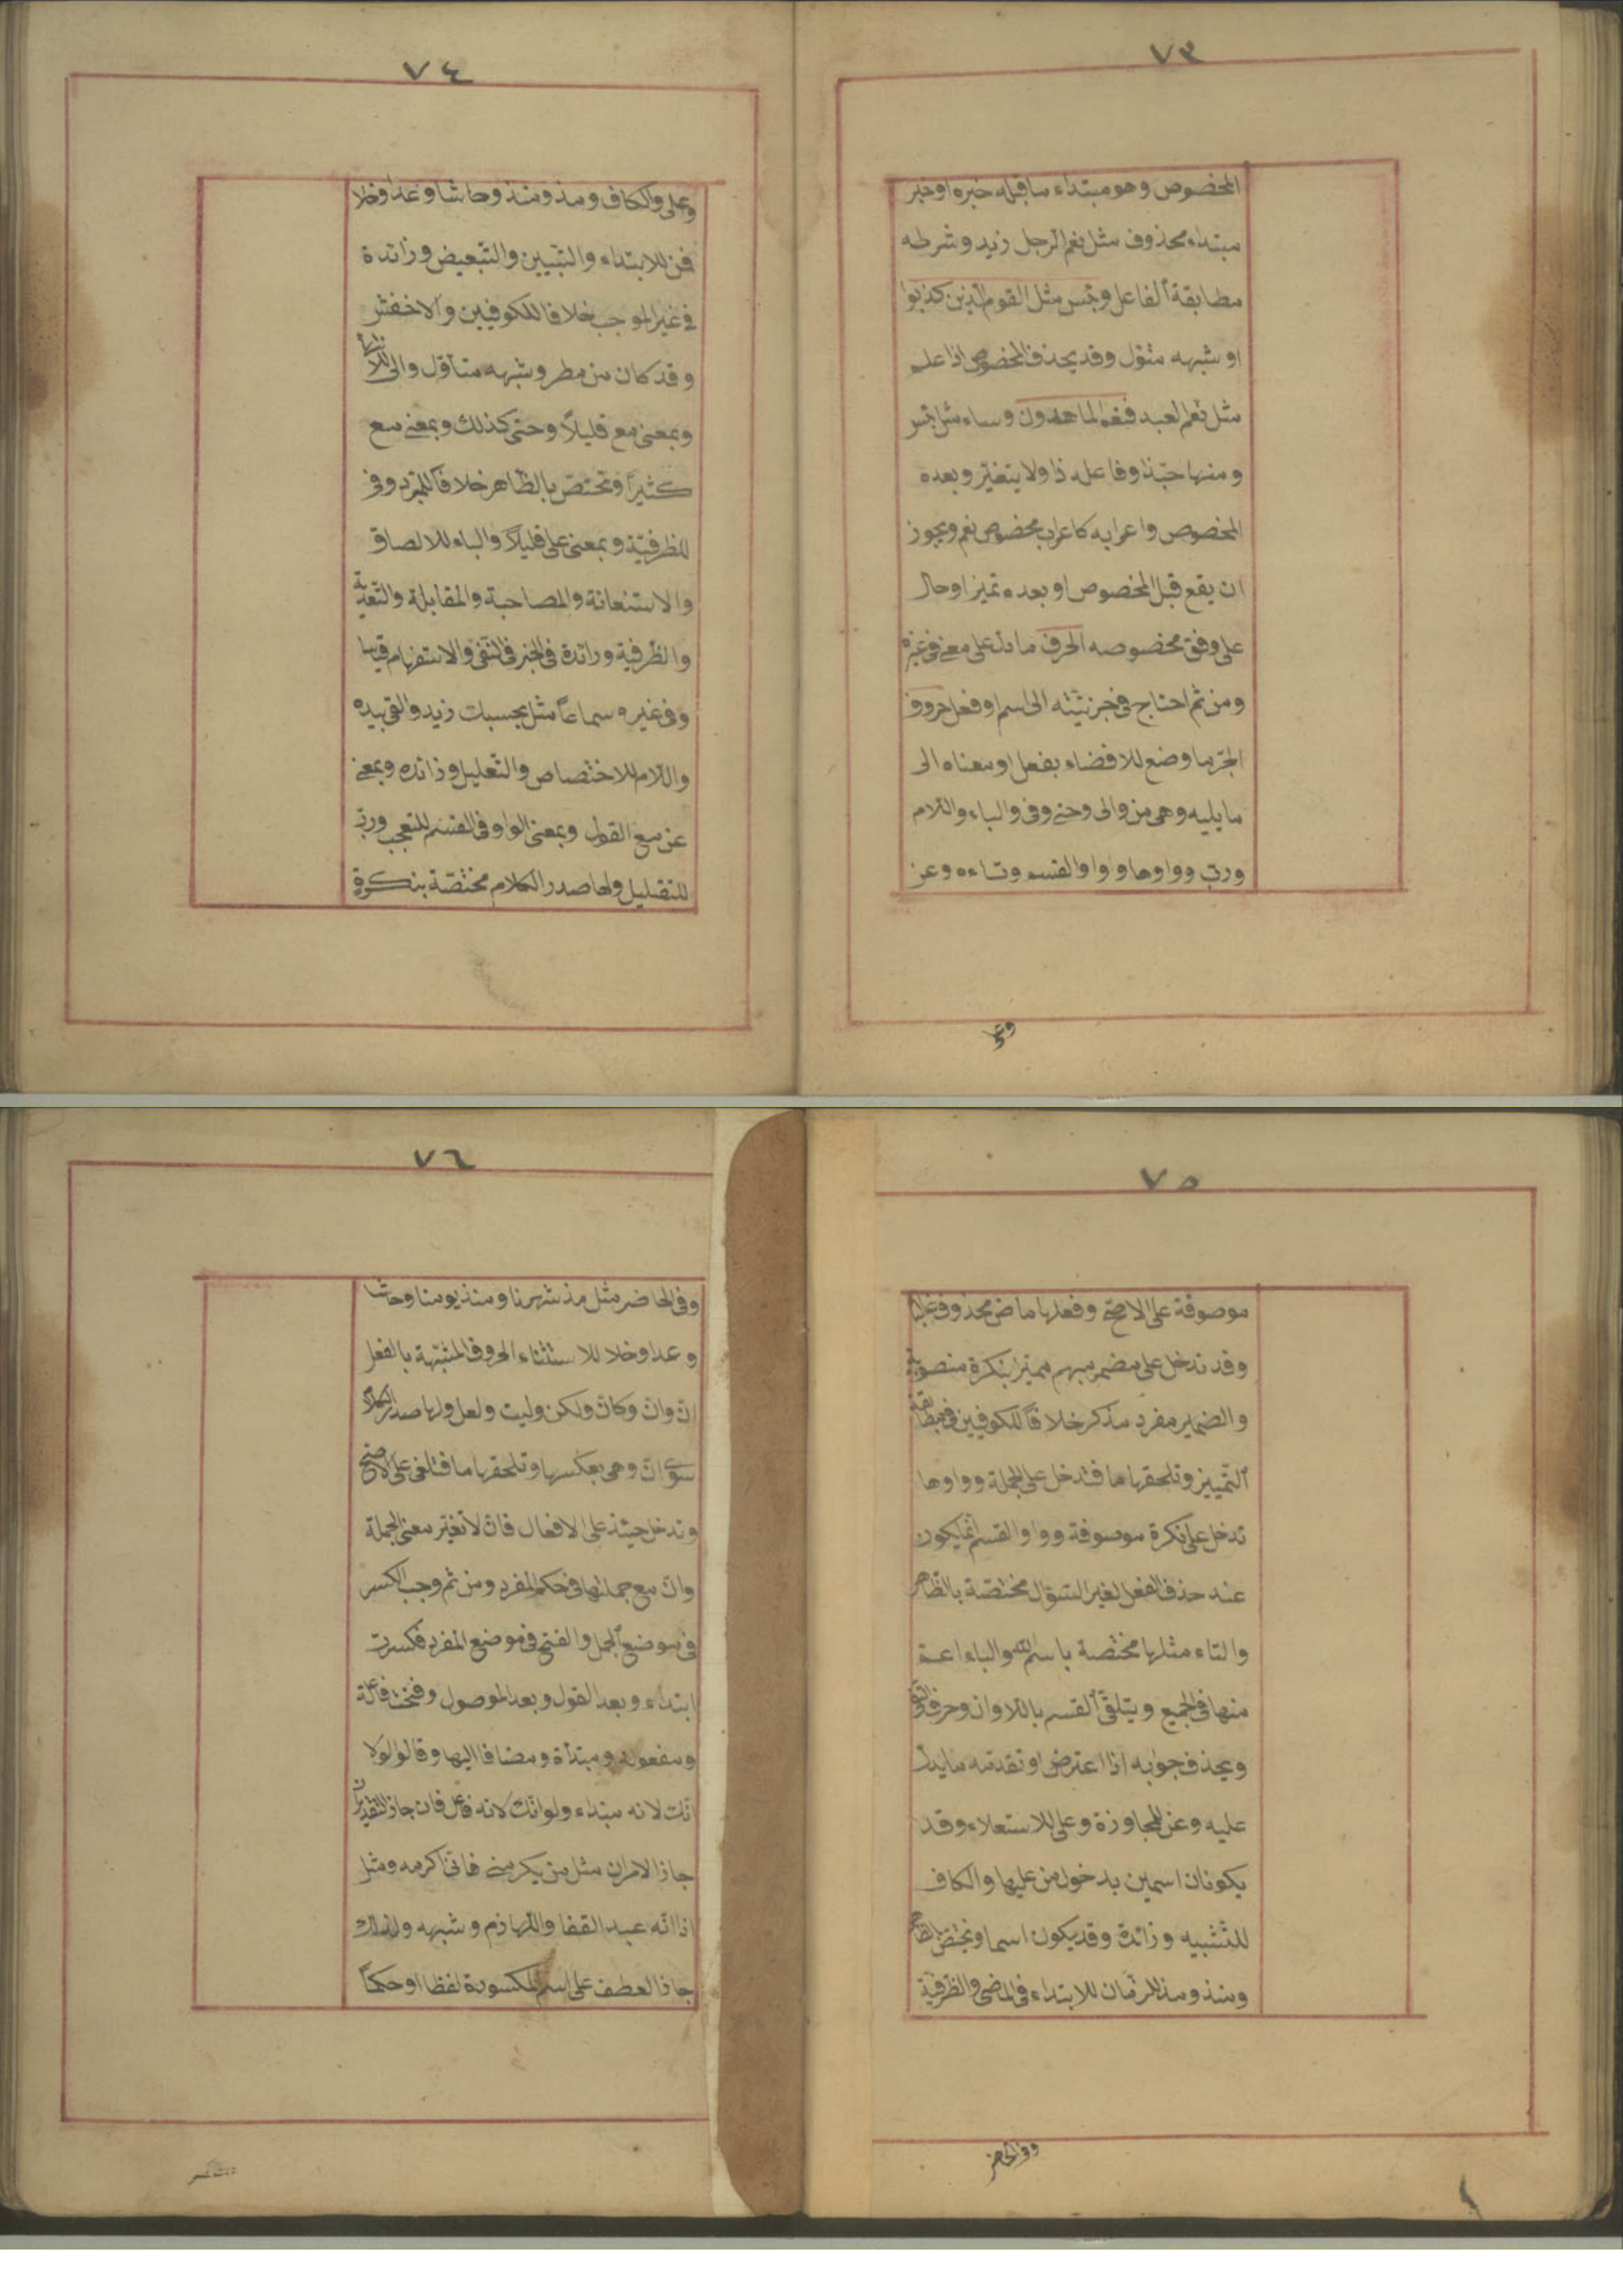 ٧٣
المخصوص وهو مبتداء ما قبله خبره او خبر
مبتداء محذوف مثل نعم الرجل زيد وشرطه
مطابقة الفاعل وبئس مثل القوم الذين كذبوا
او شبهه متؤل وقد يحذف المخصوص اذا علم
مثل نعم العبد فنعم الماهدون وساء مثل بئس
ومنها حبّذا وفاعله ذا ولا يتغيّر وبعده
المخصوص واعرابه كاعراب مخصوص نعم ويجوز
ان يقع قبل المخصوص او بعده تميز او حال
على وفق مخصوصه الحرف ما دل على معنى في غيره
ومن ثم احتاج في جزئيّته الى اسم او فعل حروف
الجرّ ما وضع للافضاء بفعل او معناه الى
ما يليه وهي من والى وحتى وفي والباء واللام
وربّ وواوها وواو القسم وتاءه وعن
وعلى
٧٤
وعلى والكاف ومذ ومنذ وحاشا وعدا وخلا
فمن للابتداء والتبيين والتبعيض وزائدة
في غير الموجب خلافا للكوفيين والاخفش
وقد كان من مطر وشبهه متأوّل والى للانتهاء
وبمعنى مع قليلاً وحتى كذلك وبمعنى مع
كثيرًا وتختصّ بالظاهر خلافاً للمبرّد وفي
للظرفيّة وبمعنى على قليلاً والباء للالصاق
والاستعانة والمصاحبة والمقابلة والتعدية
والظرفية وزائدة في الخبر في النفي والاستفهام قياسا
وفي غيره سماعاً مثل بحسبك زيد والقى بيده
واللام للاختصاص والتعليل وزائده وبمعنى
عن مع القول وبمعنى الواو في القسم للتعجب وربّ
للتقليل ولها صدر الكلام مختصّة بنكرة
٧٥
موصوفة على الاصحّ وفعلها ماض محذوف غالبا
وقد تدخل على مضمر مبهم مميّز بنكرة منصوبة
والضمير مفرد مذكر خلافاً للكوفيين في مطابقة
التّمييز وتلحقها ما فتدخل على الجملة وواوها
تدخل على نكرة موصوفة وواو القسم انما يكون
عند حذف الفعل لغير السّؤال مختصّة بالظاهر
والتاء مثلها مختصة باسم الله والباء اعمّ
منها في الجميع ويتلقّى القسم باللام وان وحرف النّفي
ويحذف جوابه اذا اعترض او تقدمه ما يدلّ
عليه وعن للمجاوزة وعلى للاستعلاء وقد
يكونان اسمين بدخول من عليها والكاف
للتّشبيه وزائدة وقد يكون اسما وتختصّ بالظاهر
ومنذ ومذ للزمان للابتداء في الماضي والظرفيّة
وفي الحاضر
٧٦
وفي الحاضر مثل مذ شهرنا ومنذ يومنا وحاشا
وعدا وخلا للاستثناء الحروف المشبّهة بالفعل
انّ وانّ وكانّ ولكن وليت ولعل ولها صدر الكلام
سوى انّ وهي بعكسها وتلحقها ما فتلغى على الاصحّ
وتدخل حينئذ على الافعال فانّ لا تغيّر معنى الجملة
وانّ مع جملتها في حكم المفرد ومن ثم وجب الكسر
في موضع الجمل والفتح في موضع المفرد فكسرت
ابتداء وبعد القول وبعد الموصول وفتحت فاعلة
ومفعولة ومبتدأة ومضافا اليها وقالوا لولا
انّك لانه مبتداء ولو انّك لانه فاعل فان جاز التقديران
جاز الامران مثل من يكرمني فانّي اكرمه ومثل
اذا انّه عبد القفا واللهازم وشبهه ولذلك
جاز العطف على اسم المكسورة لفظا او حكماً